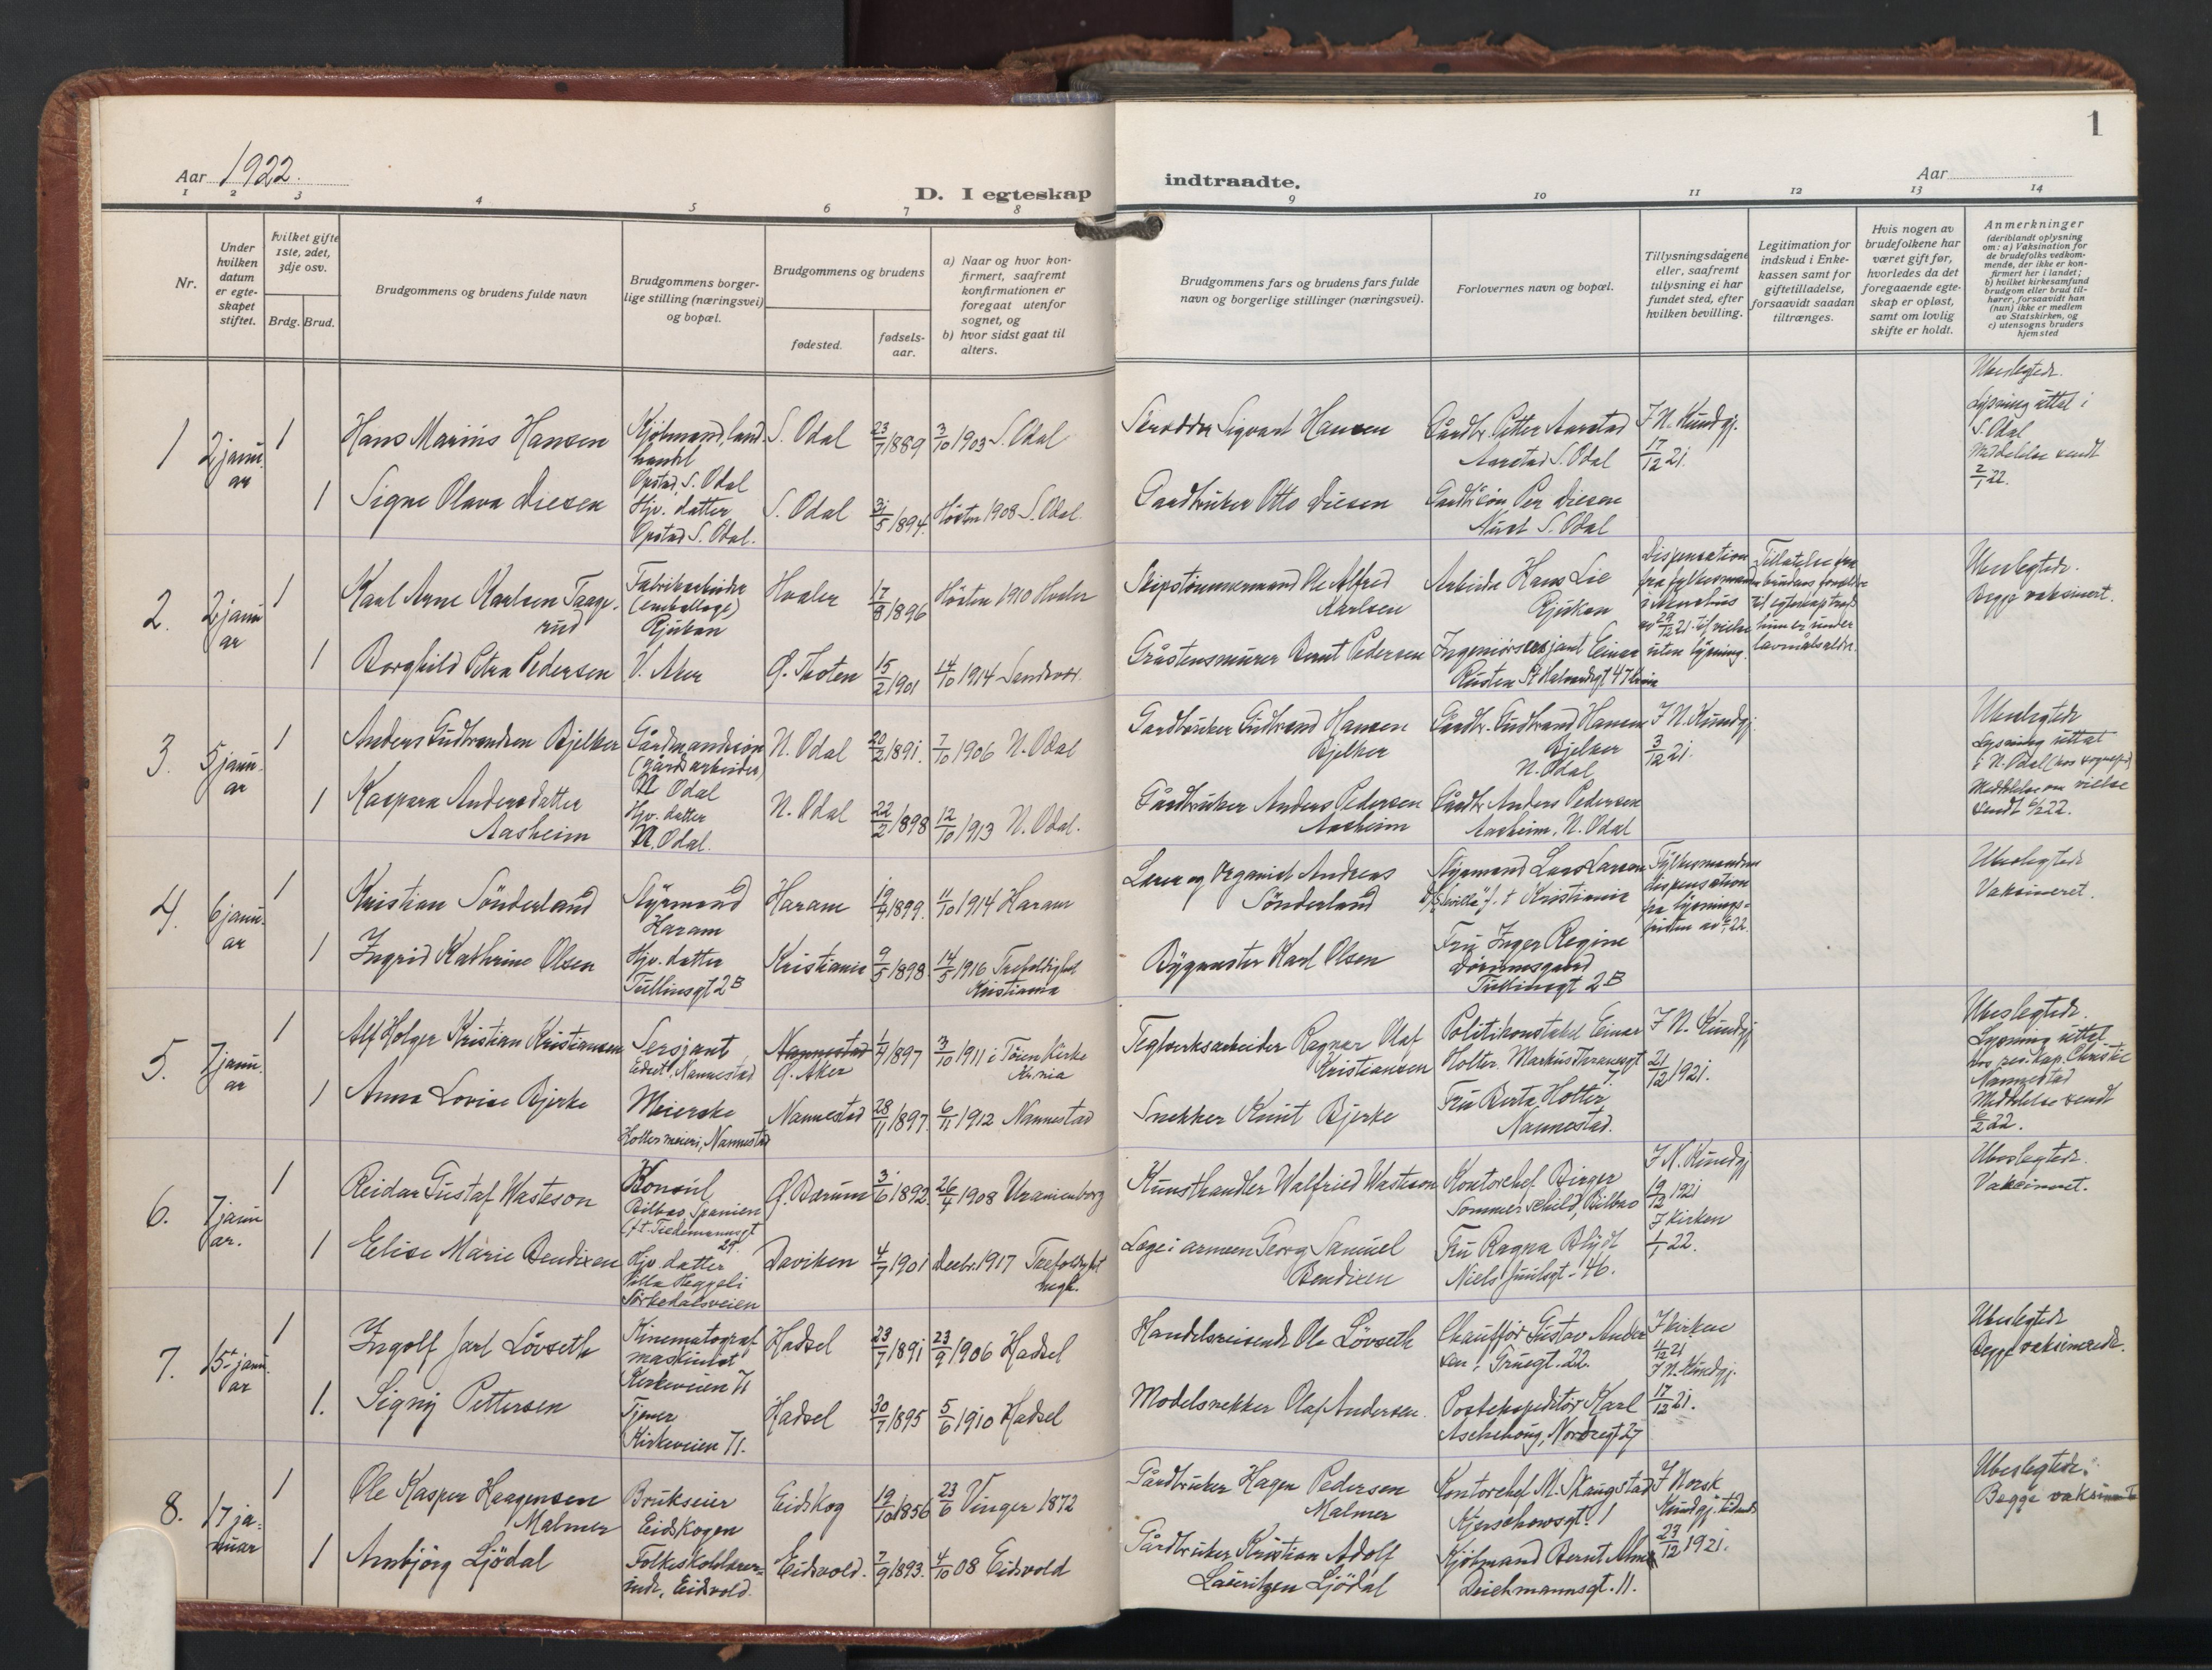 1
Aar 1922.
D. I egteskap
indtraadte.
Aar
1 2 3 4 5 6 7 8 9 10 11 12 13 14
Nr.
Under
hvilken
datum
er egte-
skapet
stiftet.
hvilket gifte
1ste, 2det,
3dje osv.
Brdg. Brud.
Brudgommens og brudens fulde navn
Brudgommens borger-
lige stilling (næringsvei)
og bopæl.
Brudgommens og brudens
fødested.
fødsels-
aar.
a) Naar og hvor kon-
firmert, saafremt
konfirmationen er
foregaat utenfor
sognet, og
b) hvor sidst gaat til
alters.
Brudgommens fars og brudens fars fulde
navn og borgerlige stillinger (næringsvei).
Forlovernes navn og bopæl.
Tillysningsdagene
eller, saafremt
tillysning ei har
fundet sted, efter
hvilken bevilling.
Legitimation for
indskud i Enke-
kassen samt for
giftetilladelse,
forsaavidt saadan
tiltrænges.
Hvis nogen av
brudefolkene har
været gift før,
hvorledes da det
foregaaende egte-
skap er opløst,
samt om lovlig
skifte er holdt.
Anmerkninger
(deriblandt oplysning
om: a) Vaksination for
de brudefolks vedkom-
mende, der ikke er kon-
firmert her i landet;
b) hvilket kirkesamfund
brudgom eller brud til-
hører, forsaavidt han
(hun) ikke er medlem
av Statskirken, og
c) utensogns bruders
hjemsted
1
2 janu
ar
1
Hans Marius Hansen
Kjøbmand, land
handel
Opstad, S. Odal
S. Odal
23/7 1889
3/10 1903 S. Odal
Skrædder Sigvart Hansen
Gårdbr. Petter Aarstad
Aarstad S. Odal
I N. Kundgj.
17/12 21.
Ubeslegtede.
Lysning uttat i
S. Odal
Meddelelse sendt
2/1 22.
1
Signe Olava Diesen
Hjv. datter
Opstad S. Odal.
S. Odal
31/5 1894.
Høsten 1908 S. Odal.
Gaardbruker Otto Diesen
Gaardbr. søn Per Diesen
S. Odal
2.
2 janu
ar
1
Karl Arne Karlsen Taage-
rud
Fabrikarbeider
(emballage)
Rjukan
Hvaler
17/8 1896
Høsten 1910 Hvaler
Skipstømmermand Ole Alfred
Karlsen
Arbeider Hans Lie
Rjukan
Dispensation
fra fylkesmand
i Akershus
av 29/12 21. til vielse
uten lysning.
Tillatelse fra
brudens forældre
til egteskap trods
hun er under
lavmålsalder.
Ubeslegtede.
Begge vaksinert.
1
Borghild Petra Pedersen
V. Aker
Ø. Toten
15/2 1901
14/10 1914
Gråstensmurer Bernt Pedersen
Ingeniørsersjant Einar
Rusten St Halvardsgt 47
3.
5 janu-
ar
1
Anders Gudbrandsen Bjelker
Gårdmandssøn
(gårdsarbeider)
N. Odal
N. Odal
20/2 1891.
7/10 1906 N. Odal
Gardbruker Gudbrand Hansen
Bjelker
Gårdbr. Gudbrand Hansen
Bjelker
N. Odal
I N. Kundgj.
3/12 21.
Ubeslegtede
Lysning uttat
i N. Odal (hos sognepr)
Meddelelse om vielse
sendt 6/1 22.
1
Kaspara Andersdatter
Aasheim
Hjv. datter
N. Odal.
N. Odal
22/2 1898
12/10 1913 N. Odal.
Gårdbruker Anders Pedersen
Aasheim
Gårdbr. Anders Pedersen
Aasheim, N. Odal
4.
6 janu-
ar
1
Kristian Sönderland
Styrmand
Haram
Haram
19/4 1899.
11/10 1914 Haram
Lærer og Organist Andreas
Sönderland
Styrmand Lars Larsen
f. t. Kristiania
Fylkesmandens
dispensation
fra lysnings-
fristen av 6/1 22.
Ubeslegtede
Vaksineret.
1
Ingrid Kathrine Olsen
Hjv. datter
Tullinsgt 2B
Kristiania
9/5 1898
14/5 1916 Trefoldighet
Kristiania
Bygmester Karl Olsen
Fru Inger Regine
Tullinsgt 2B
5.
7 janu-
ar
1
Alf Holger Kristian Kristiansen
Sersjant
Nannestad
Nannestad
Ø. Aker
1/4 1897
3/10 1911 i Töien Kirke
Kr.nia
Teglverksarbeider Ragnar Olaf
Kristiansen
Politikonstabel Einar
Holter Markus Thranesgt
7.
I N. Kundgj
21/12 1921.
Ubeslegtede.
Lysning uttat
hos res. kap. Christie
Nannestad
Meddelelse sendt
6/2 22.
1
Anna Lovise Bjerke
Meierske
Holter meieri, Nannestad
Nannestad
28/11 1897.
6/11 1912 Nannestad
Snekker Knut Bjerke
Fru Berta Holter
Nannestad.
6.
7 janu
ar.
1
Reidar Gustaf Wasteson
Konsul
Bilbao Spanien
(f. t. Tidemannsgt
29.
Ø. Bærum
3/6 1892.
26/4 1908 Uranienborg
Kunsthandler Walfried Wasteson
Kontorchef Birger
Sommerschild, Bilbao
I N. Kundgj
19/12 1921
I Kirken
1/1 22.
Ubeslegtede.
Vaksineret.
1
Elise Marie Bendixen
Hjv. datter
Villa Heggeli
Sørkedalsveien
Daviken
4/7 1901
Decbr. 1917 Trefoldighet
mgh.
Læge i armeen Georg Samuel
Bendixen
Fru Ragna Blydt
Niels Juulsgt - 46.
7.
15de janu.
ar
1
Ingolf Jarl Lövseth
Kinematograf
maskinist
Kirkeveien 71
Hadsel
23/7 1891
23/9 1906 Hadsel
Handelsreisende Ole Lövseth
Chauffør Gustav Ander
sen, Truegt. 22.
I kirken
4/12 21
I N. Kundgj.
17/12 21.
Ubeslegtede
Begge vaksinerede.
1.
Signy Pettersen
Tjener
Kirkeveien 71.
Hadsel
30/7 1895
5/6 1910 Hadsel
Modelsnekker Olaf Andersen.
Postekspeditør Karl
Aschehoug, Nordregt 27
8.
17 ja-
nuar
1
Ole Kasper Haagensen
Malmer
Brukseier
Eidskogen
Eidskog
19/10 1856
23/6 Vinger 1872
Gårdbruker Hagen Pedersen
Malmer
Kontorchef M. Skaugstad
Kjerschowsgt. 1
I Norsk
Kundgj. tidende
23/12 1921.
Ubeslegtede.
Begge vaksinert
1
Arnbjörg Ljödal
Folkeskolelærer-
inde, Eidsvold.
Eidsvold.
7/9 1893.
4/10 08 Eidsvold
Gårdbruker Kristian Adolf
Lauritzen Ljödal
Kjøbmand Bernt
Deichmannsgt. 11.